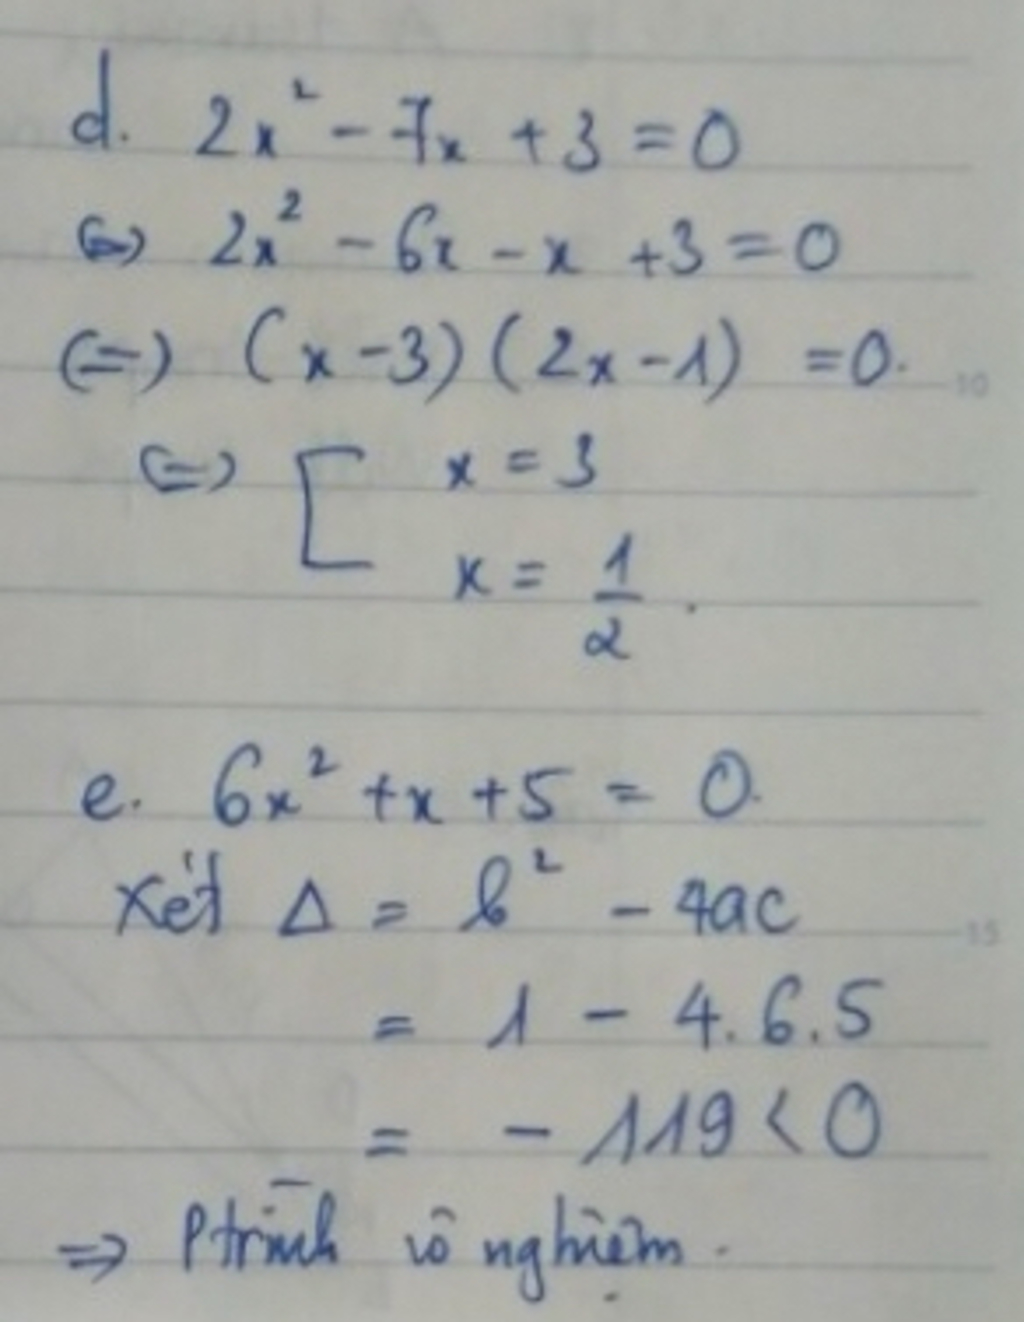 d. 2x² - 7x + 3 = 0
(=) 2x² - 6x - x + 3 = 0
(=) (x - 3)(2x - 1) = 0.
(=) [ x = 3
x = 1/2 .
e. 6x² + x + 5 = 0.
Xét Δ = b² - 4ac
= 1 - 4.6.5
= - 119 < 0
=> Ptrình vô nghiệm.
10
15